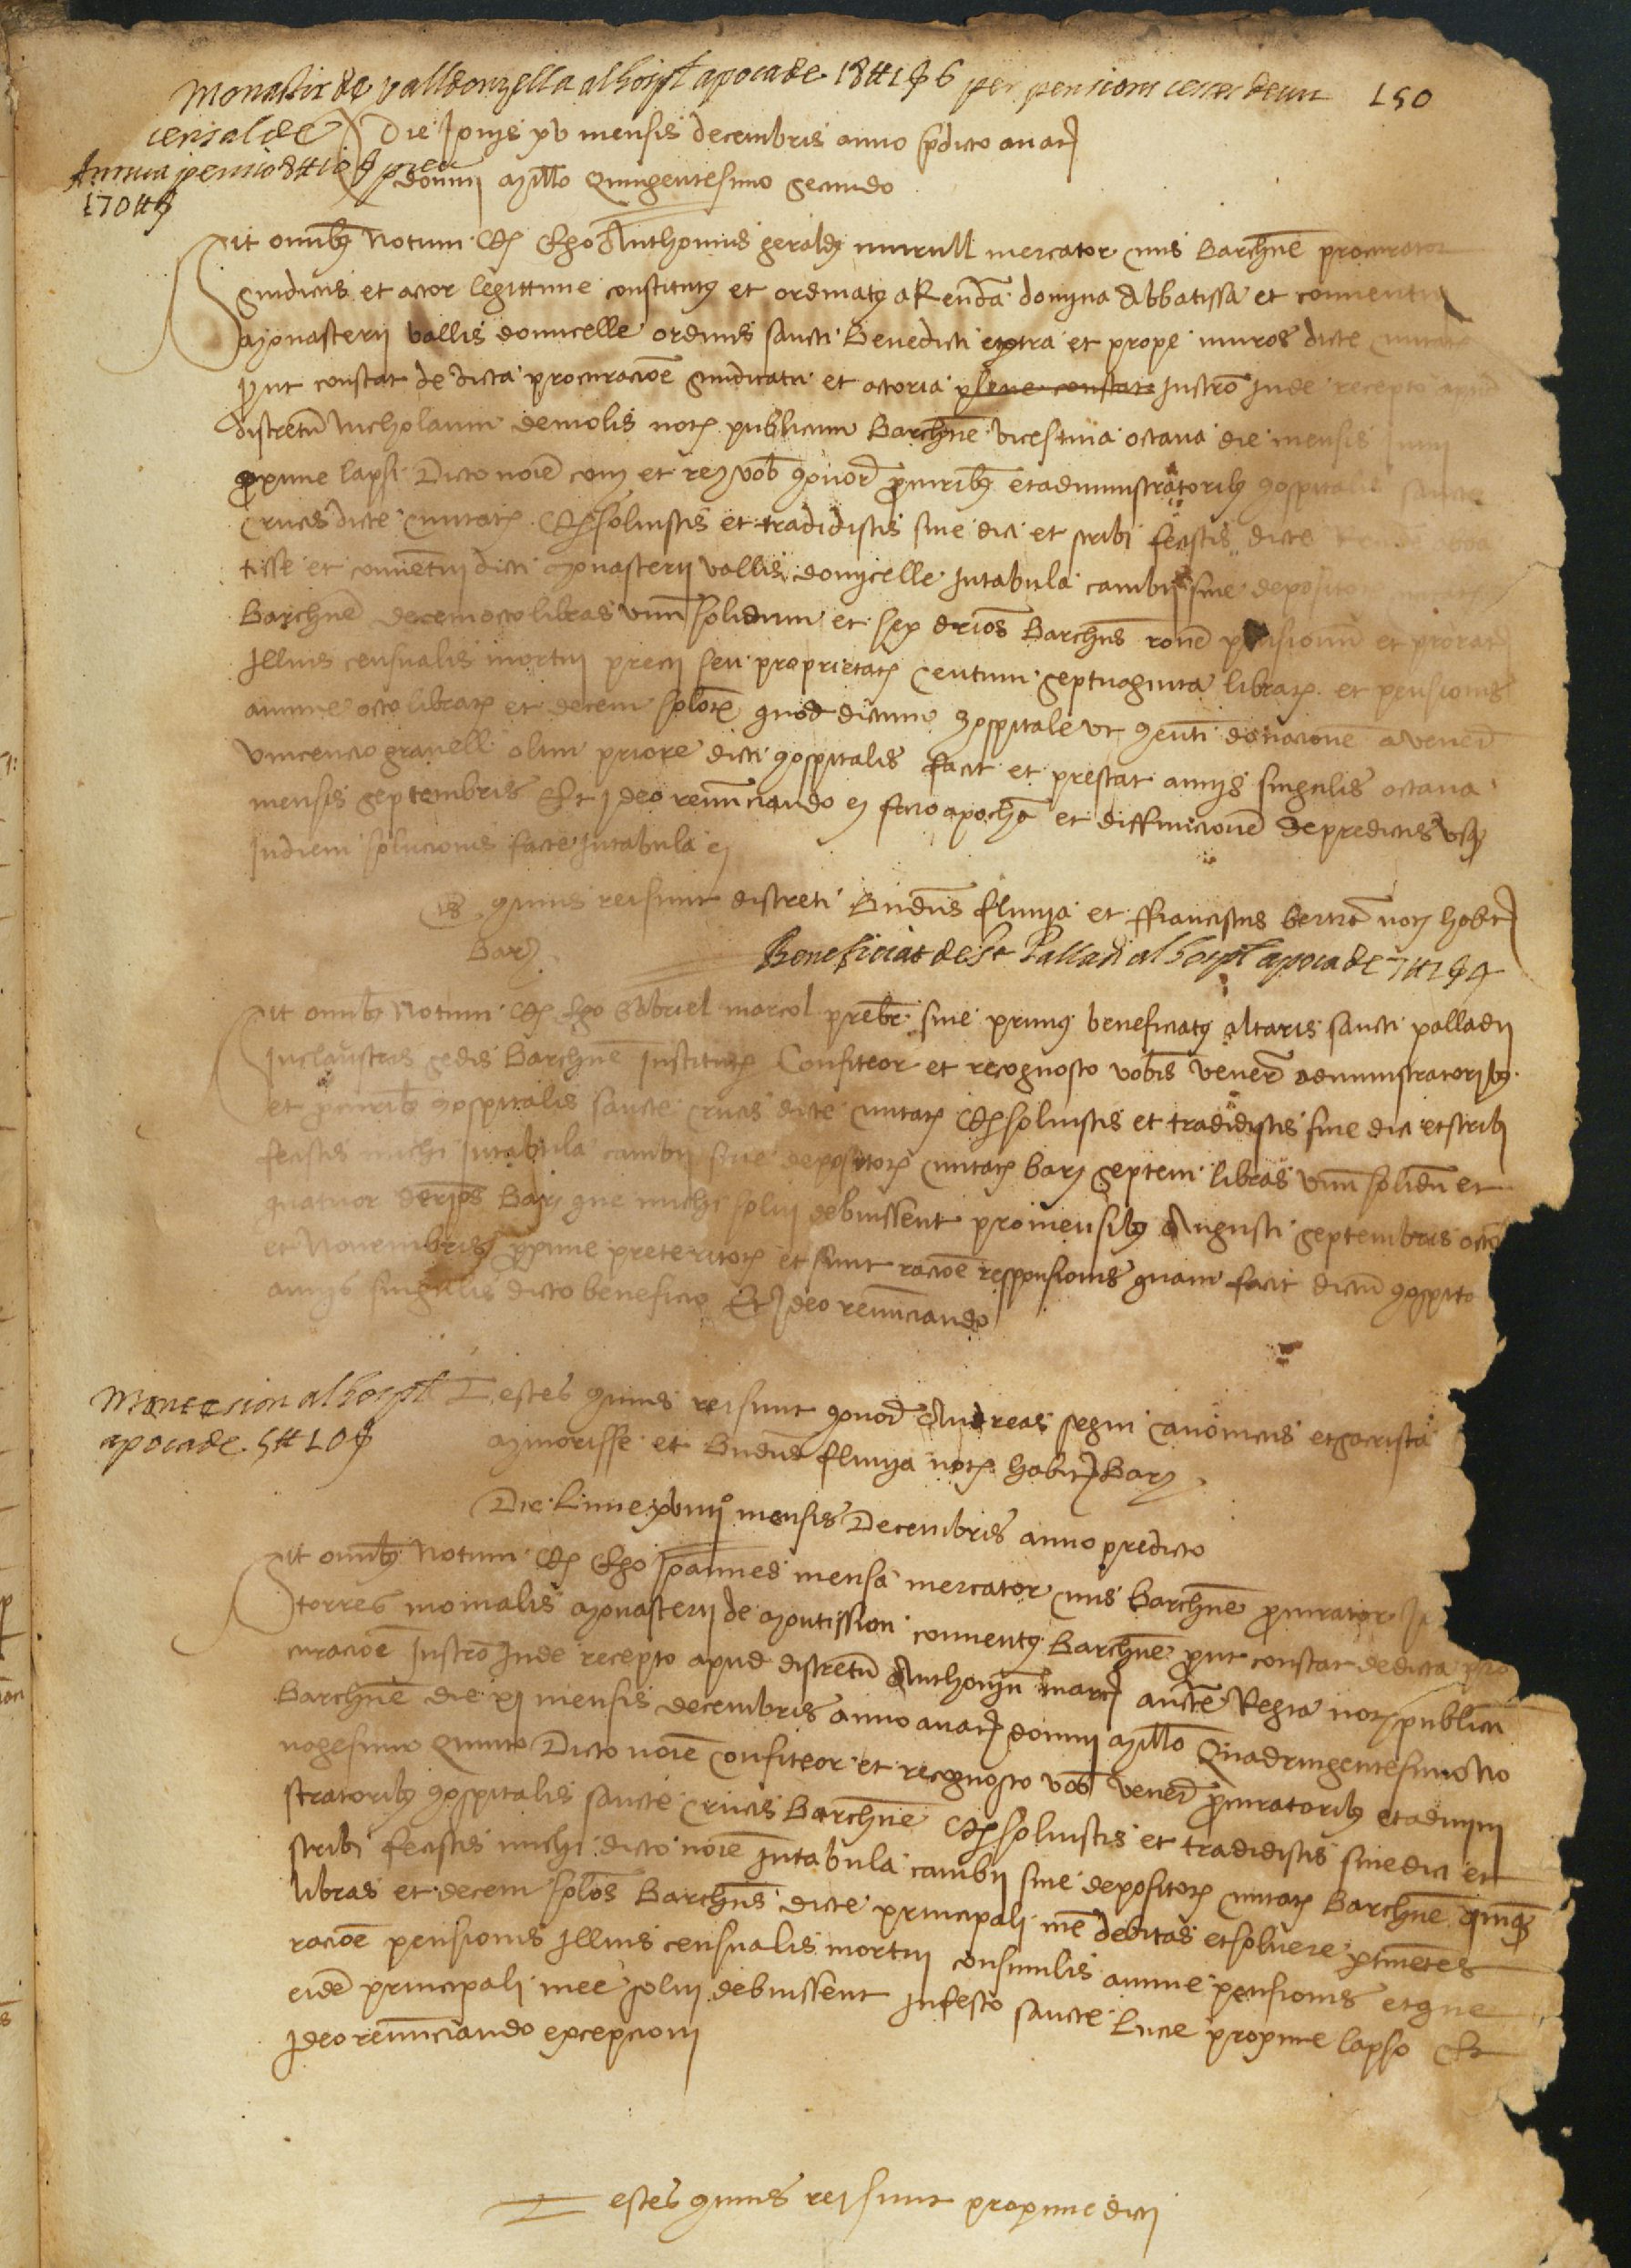 Monastir de valldonzella al hospl apoca de 18 ℔ 1 ẞ 6 per pensions cesses de un 150
censal de
Annua pensio 8 ℔ 10 ẞ preu
170 ℔ ẞ
Die Jovis xv mensis decembris anno predicto a nat
domini Millo Quingentesimo secundo
Sit omnibus Notum Qd Ego Anthonius geraldus murull mercator civis Barchne procurator
sindicus et actor legittime constitutus et ordinatus a Renda domina Abbatissa et conventu
Monasterii vallis domicelle ordinis sancti Benedicti extra et prope muros dicte civitat
put constat de dicta procuracioe sindicatu et actoria plene constat Instro Inde recepto apud
discretu Nicholaum de molis notm publicum Barchne vicesima octava die mensis Junii
proxime lapsi Dicto noie conf et rec vob honor procuribus et administratoribus hospitalis sancte
crucis dicte civitatis Qd solvistis et tradidistis sive dici et scribi fecistis dicte Rende abba
tisse et conventui dicti Monasterii vallis domicelle In tabula cambii sive depositor civitatis
Barchne decem octo libras unu solidum et sex drios Barchns rone pensionu et prorat
Illius censualis mortui precii seu proprietatis Centum septuaginta librar et pensionis
annue octo librar et decem solor quod dictum hospitale ut henti donacione a vener
Vincencio gravell olim priore dicti hospitalis facit et prestat annis singulis octava
mensis septembris Et Ideo renunciando ec facio apocha et diffinicione de predictis usq
In diem solucionis facte In tabula ec
ts hujus rei sunt discreti Budus fluvia et ffranciscus bertra not habit
Barc
Beneficiat de St Palladi al hospl apoca de 7 ℔ 1 ẞ 4
Sit omnibus Notum Qd Ego Gabriel marcol prebr sive primus beneficiatus altaris sancti palladii
In claustris sedis Barchne Institutis Confiteor et recognosco vobis Vener administratoribus
et procuribus hospitalis sancte crucis dicte civitatis Qd solvistis et tradidistis sive dici et scribi
fecistis michi In tabula cambii sive depositor civitatis barc septem libras unu solidu et
quatuor derios Barc que michi solvi debuissent pro mensibus Augusti septembris octo
et Novembris proxime preteritor et sunt racioe responsionis quam facit dictu hospita
annis singulis dicto beneficio Et Ideo renunciando
Montesion al hospl
apoca de 5 ℔ 10 ẞ
Testes hujus rei sunt honor Andreas segui canonicus et sacrista
Minorisse et Budus fluvia notm habit Barc
Die Lune xviiii mensis Decembris anno predicto
Sit omnibus Notum Qd Ego Joannes mensa mercator civis Barchne procurator
torres monialis Monasterii de Montission conventus Barchne prout constat de dicta pro
curacioe Instro Inde recepto apud discretu Anthoniu marc aucte Regia notm publicu
Barchne die xi mensis decembris anno a nat domini Millo Quadringentesimo No
nogesimo Quinto Dicto noie Confiteor et recognosco vob Vener procuratoribus et admini
stratoribus hospitalis sancte Crucis Barchne Qd solvistis et tradidistis sive dici et
scribi fecistis michi dicto noie In tabula cambii sive depositor civitatis Barchne quinq
libras et decem solos Barchns dicte principali me debitas et solvere ptinetes
racioe pensionis Illius censualis mortui consimilis annue pensionis et que
eide principali mee solvi debuissent In festo sancte Lucie proxime lapso Et
Ideo renunciando excepcioni
Testes hujus rei sunt proxime dicti